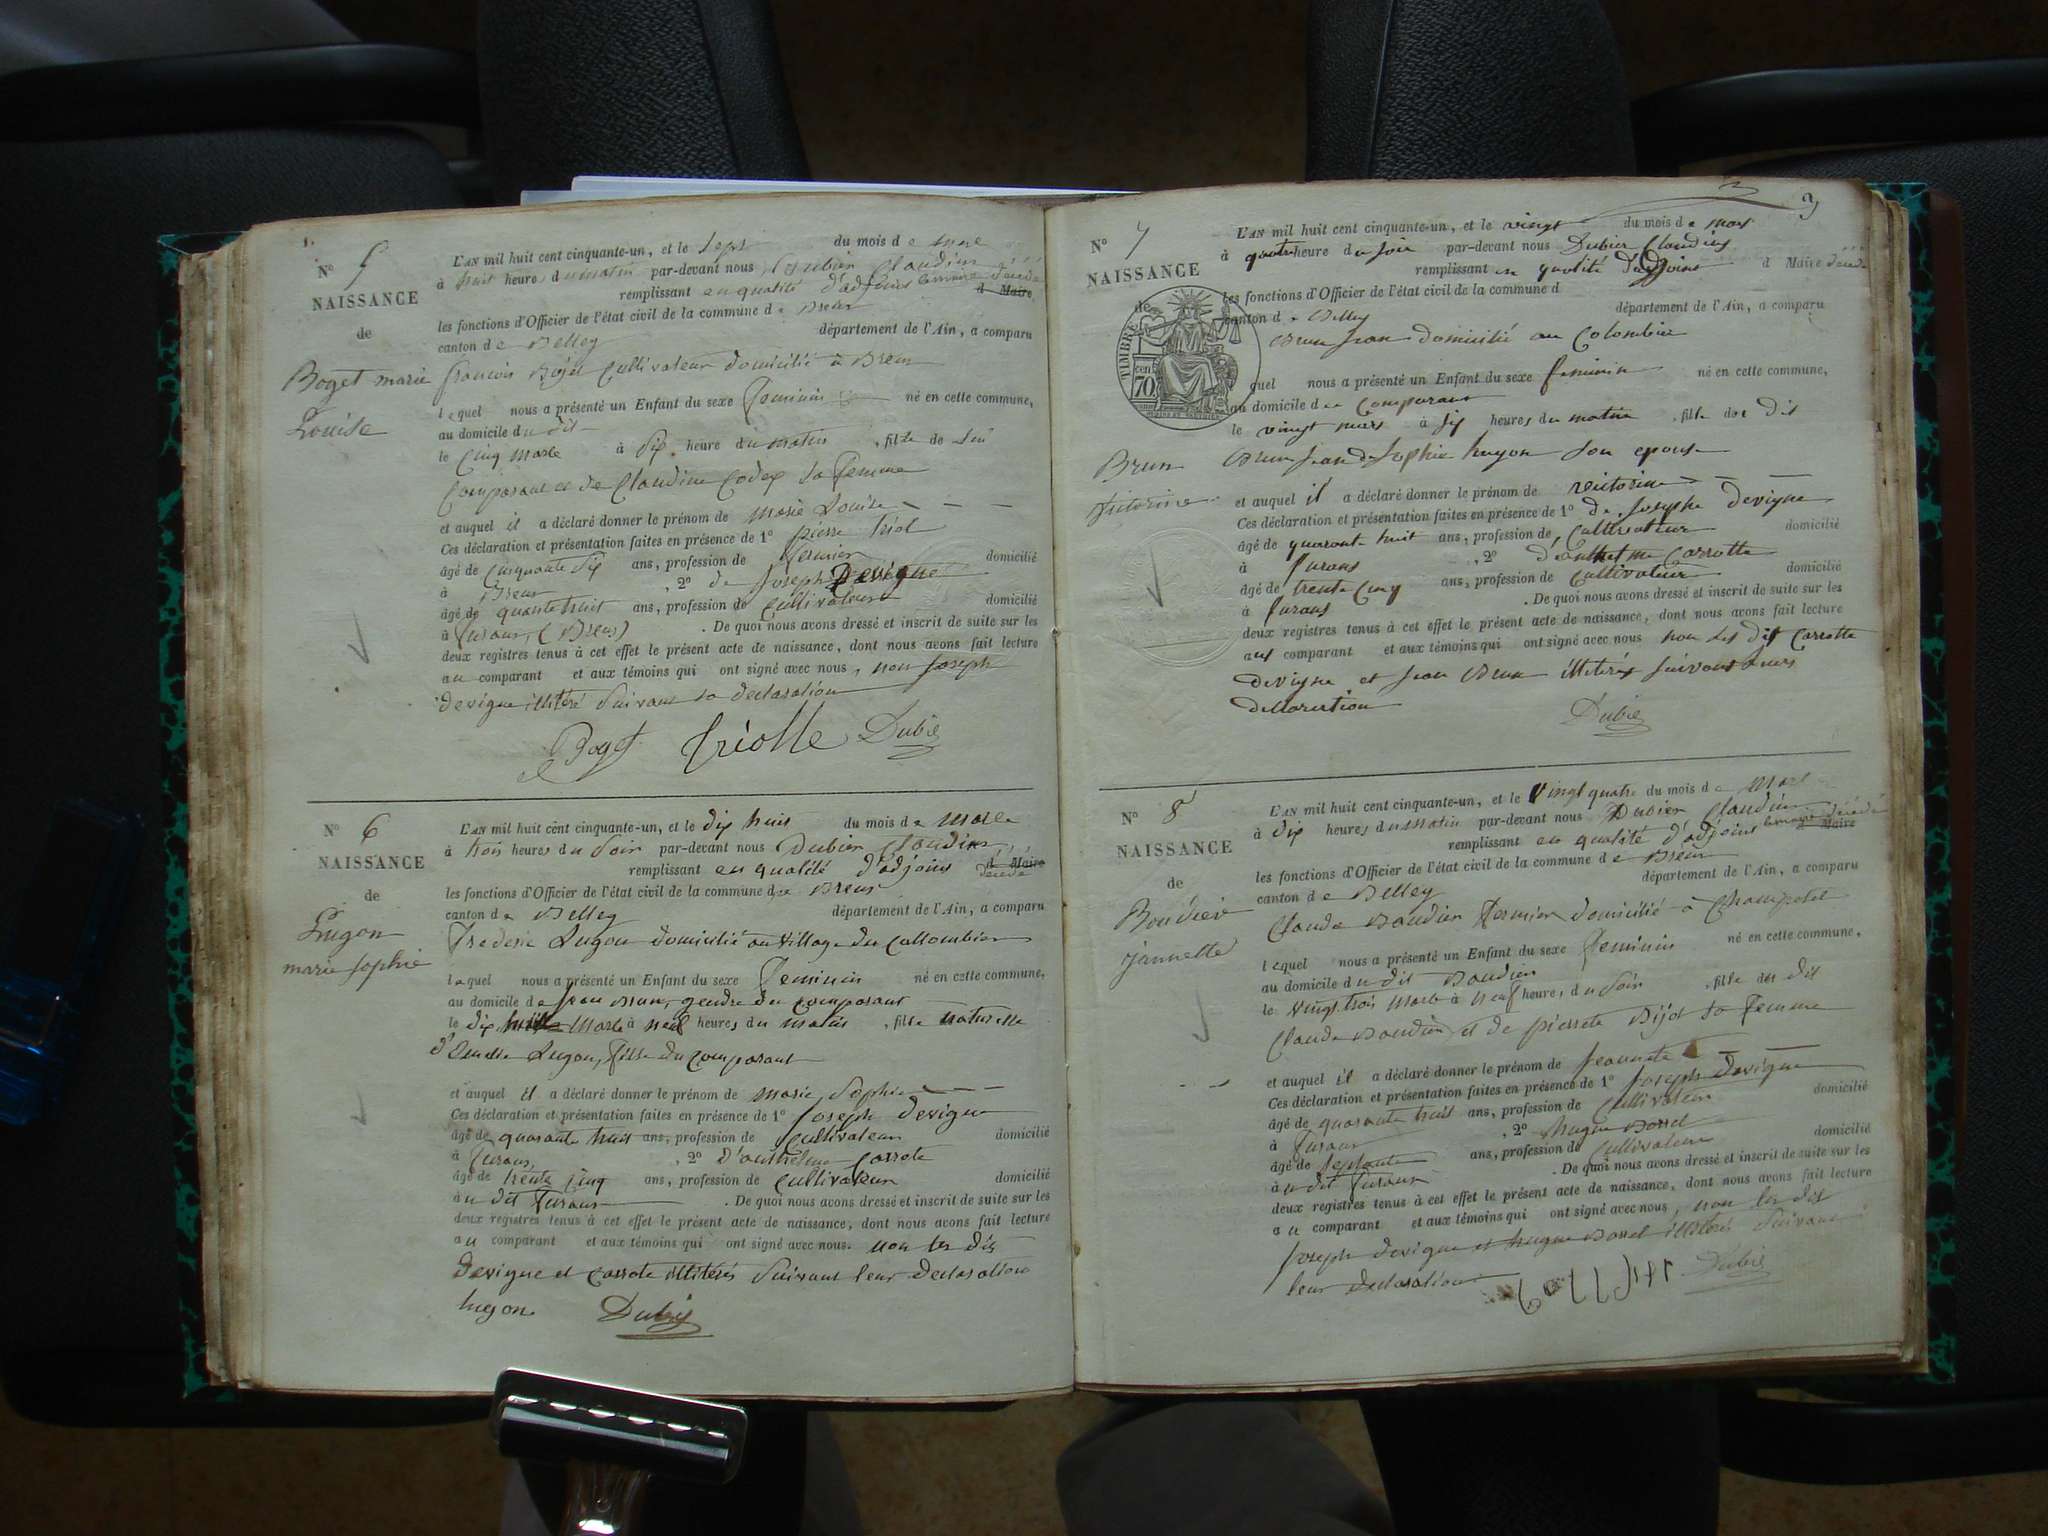 N° 5
NAISSANCE
de
Boget marie
Louise
L'AN mil huit cent cinquante-un, et le sept du mois de mars
à huit heures du matin par-devant nous Dubier Claudius
remplissant en qualité d'adjoint le maire décédé d Maire
les fonctions d'Officier de l'état civil de la commune de Brens
canton de Belley département de l'Ain, a comparu
françois Bojet Cultivateur domicilié à Brens
lequel nous a présenté un Enfant du sexe feminin né en cette commune,
au domicile du dit
le Cinq mars à dix heure du matin, fille de lui
Comparant et de Claudine Codex sa femme
et auquel il a déclaré donner le prénom de marie Louise
Ces déclaration et présentation faites en présence de 1° pierre triol
âgé de Cinquante six ans, profession de fermier domicilié
à Brens, 2° de Joseph Devigne
âgé de quarante huit ans, profession de Cultivateur domicilié
à furans, (Brens). De quoi nous avons dressé et inscrit de suite sur les
deux registres tenus à cet effet le présent acte de naissance, dont nous avons fait lecture
au comparant et aux témoins qui ont signé avec nous, non Joseph
devigne illitéré Suivant sa declaration
Boget triolle Dubié
N° 6
NAISSANCE
de
Lugon
marie sophie
L'AN mil huit cent cinquante-un, et le dix huit du mois de mars
à trois heures du soir par-devant nous Dubier Claudius
remplissant en qualité d'adjoint d Maire décédé
les fonctions d'Officier de l'état civil de la commune de Brens
canton de Belley département de l'Ain, a comparu
frederic Lugon domicilié au village du Collombier
lequel nous a présenté un Enfant du sexe feminin né en cette commune,
au domicile de Jean Brun, gendre du Comparant
le dix mars à neuf heures du matin, fille naturelle
Lugon, fille du Comparant
et auquel il a déclaré donner le prénom de marie Sophie
Ces déclaration et présentation faites en présence de 1° Joseph devigne
âgé de quarante huit ans, profession de Cultivateur domicilié
à furans, 2° d'anthelme Carrote
âgé de trente cinq ans, profession de Cultivateur domicilié
au dit furans. De quoi nous avons dressé et inscrit de suite sur les
deux registres tenus à cet effet le présent acte de naissance, dont nous avons fait lecture
au comparant et aux témoins qui ont signé avec nous. non les dits
devigne et Carrote illitérés Suivant leur declaration
lugon Dubié
3
N° 7
NAISSANCE
de
TIMBRE
70 cen
Brun
victorine
L'AN mil huit cent cinquante-un, et le vingt du mois de mars
à quatre heure du soir par-devant nous Dubier Claudius
remplissant en qualité d'adjoint d Maire décédé
les fonctions d'Officier de l'état civil de la commune d
canton de Belley département de l'Ain, a comparu
Brun Jean domicilié au Colombier
quel nous a présenté un Enfant du sexe feminin né en cette commune,
au domicile du Comparant
le vingt mars à six heures du matin, fille des dit
Brun Jean de Sophie lugon son epouse
et auquel il a déclaré donner le prénom de victorine
Ces déclaration et présentation faites en présence de 1° de Joseph Devigne
âgé de quarante huit ans, profession de Cultivateur domicilié
à furans, 2° Carrotte
âgé de trente cinq ans, profession de Cultivateur domicilié
à furans. De quoi nous avons dressé et inscrit de suite sur les
deux registres tenus à cet effet le présent acte de naissance, dont nous avons fait lecture
aux comparant et aux témoins qui ont signé avec nous non les dit Carrotte
devigne et Jean Brun illitérés suivant leurs
declaration
Dubié
N° 8
NAISSANCE
de
Boudier
jannette
L'AN mil huit cent cinquante-un, et le vingt quatre du mois de mars
à dix heures du matin par-devant nous Dubier Claudius
remplissant en qualité d'adjoint le maire décédé d Maire
les fonctions d'Officier de l'état civil de la commune de Brens
canton de Belley département de l'Ain, a comparu
Claude Baudier fermier domicilié à Champetel
lequel nous a présenté un Enfant du sexe feminin né en cette commune,
au domicile du dit Baudier
le vingt trois mars à neuf heures du soir, fille des dit
Claude Baudier et de pierrete Bijot sa femme
et auquel il a déclaré donner le prénom de Jeannete
Ces déclaration et présentation faites en présence de 1° Joseph devigne
âgé de quarante huit ans, profession de Cultivateur domicilié
à furans, 2° hugue Borret
âgé de septante ans, profession de Cultivateur domicilié
au dit furans. De quoi nous avons dressé et inscrit de suite sur les
deux registres tenus à cet effet le présent acte de naissance, dont nous avons fait lecture
au comparant et aux témoins qui ont signé avec nous, non les dits
Joseph devigne et hugue Borret illitérés Suivant
leur declaration
Dubié